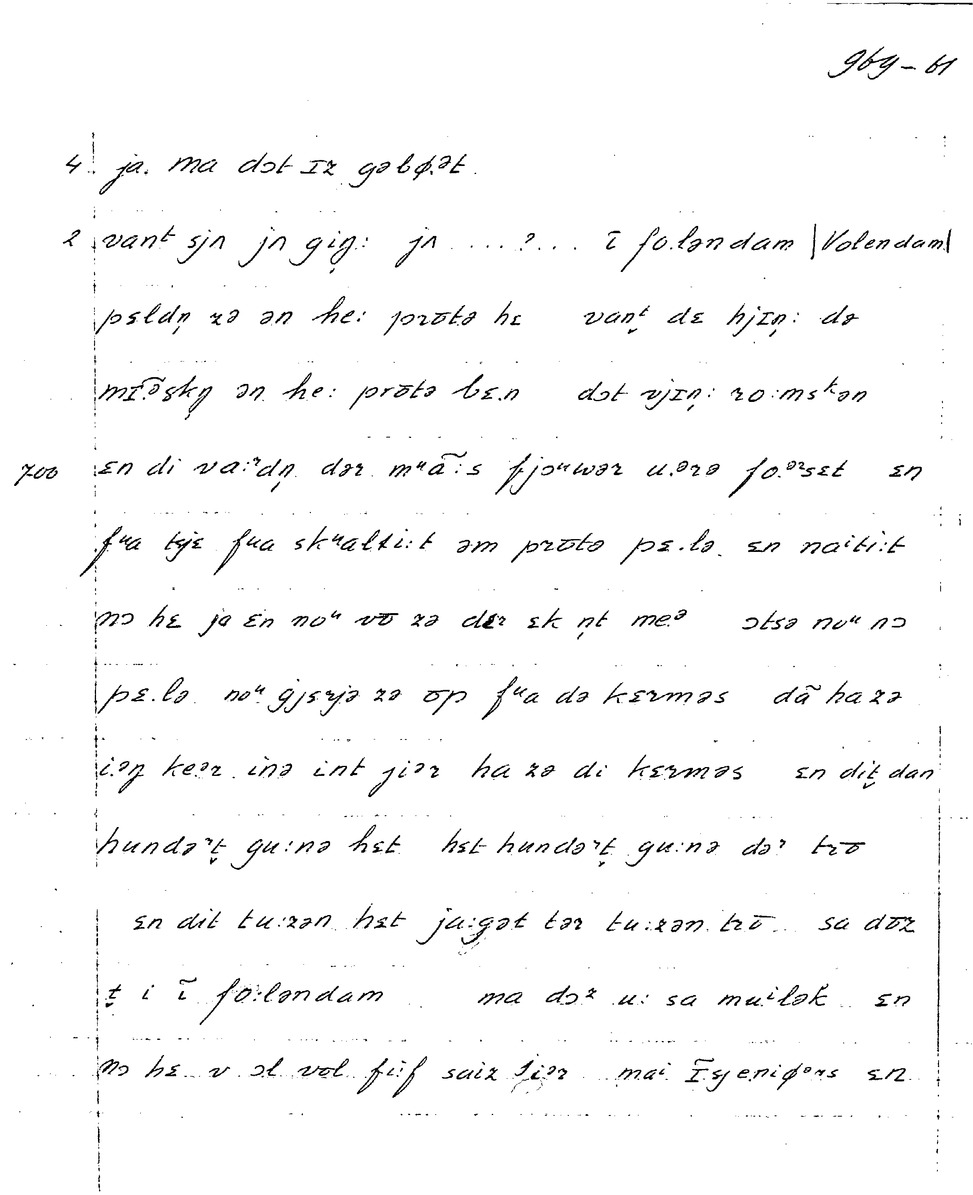 969-61
4 ja. ma dɔt ɪz gəbø.ət
2 vant sjn jn giŋ: jn ....?... ĩ fo.ləndam |Volendam|
pɛldn̩ zə ən he: protə hɛ van̬t dɛ hjɪn̩: də
ən he: protə bɛ.n dɔt vjɪn̩: ro:mskən
700 ɛn di va:rdn̩ dər mᵘã:s fjɔuwər u.ərə fo.ərsɛt ɛn
fᵘa fᵘa skᵘalti:t əm protə pɛ.lə. ɛn naiti:t
nɔ hɛ ja ɛn noᵘ vo zə dɛr ɛk n̩t meə ɔtsə noᵘ nɔ
pɛ.lə noᵘ gjɛrjə zə op fᵘa də kɛrməs dã ha zə
i.əŋ keər inə int jiər ha zə di kɛrməs ɛn dit̬ dan
hundərt̬ gu:nə hɛt hɛt hundərt̬ gu:nə dər tro
ɛn dit tu:zən hɛt ja:gət tər tu:zən tro sa doz
t̬ i ĩ fo:ləndam ma dɔz u: sa muilək ɛn
nɔ hɛ v ɔl vɔl fi:f saiz jiər mai ɛn